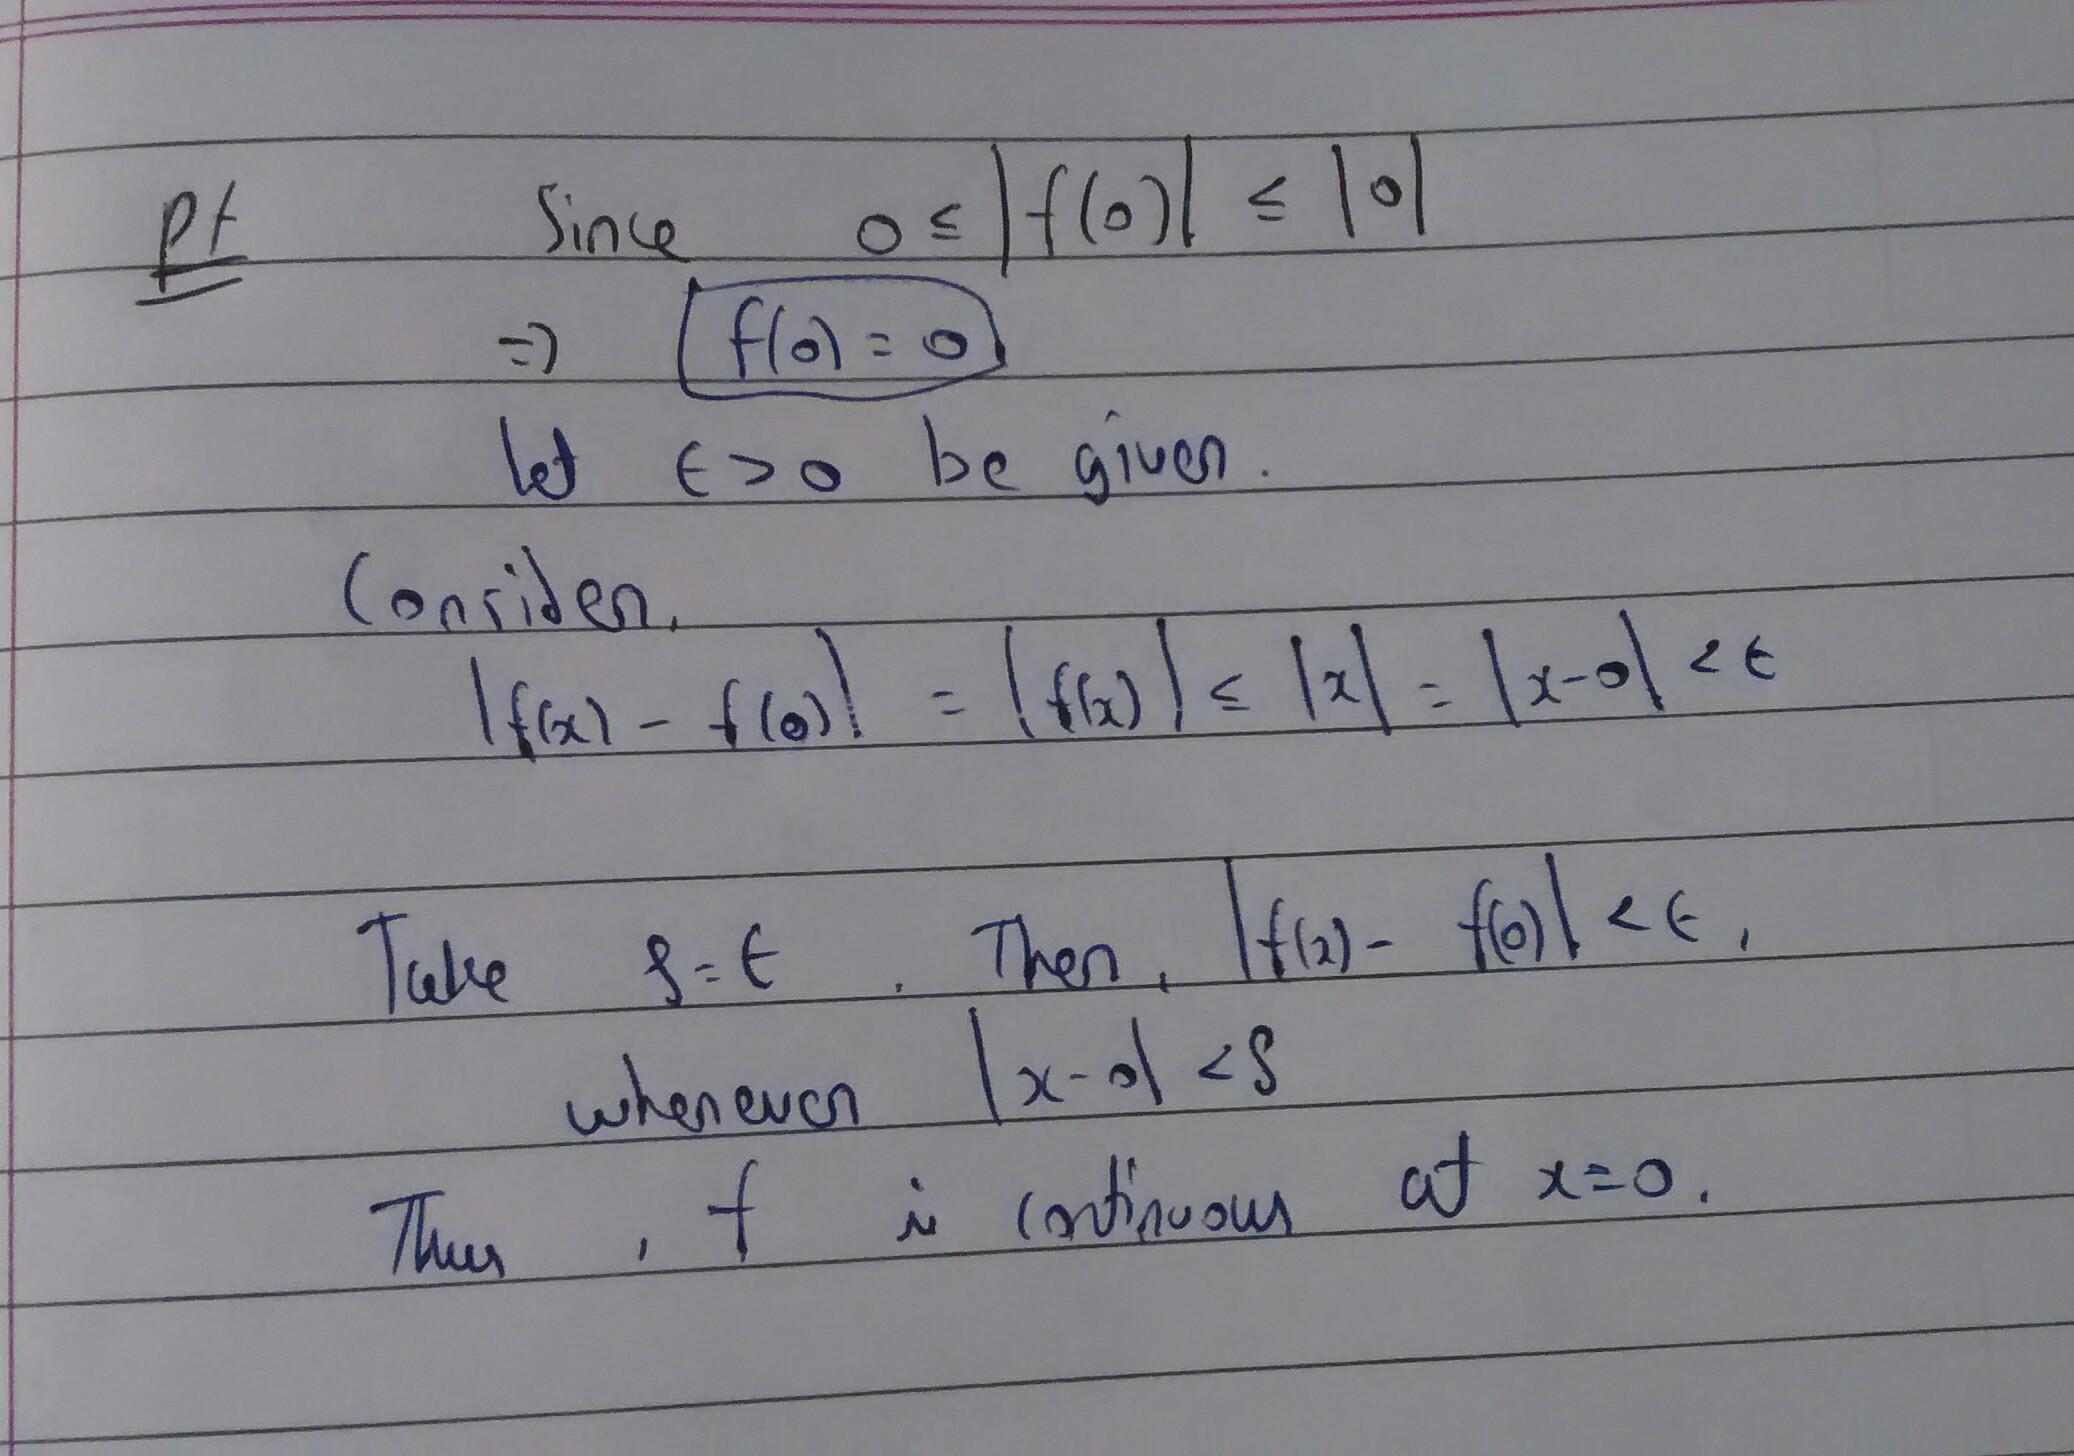 Pf Since 0 ≤ |f(0)| ≤ |0|
=> f(0) = 0
let ϵ > 0 be given.
Consider,
|f(x) - f(0)| = |f(x)| ≤ |x| = |x-0| < ϵ
Take δ = ϵ . Then, |f(x) - f(0)| < ϵ,
whenever |x-0| < δ
Thus, f is continuous at x=0.